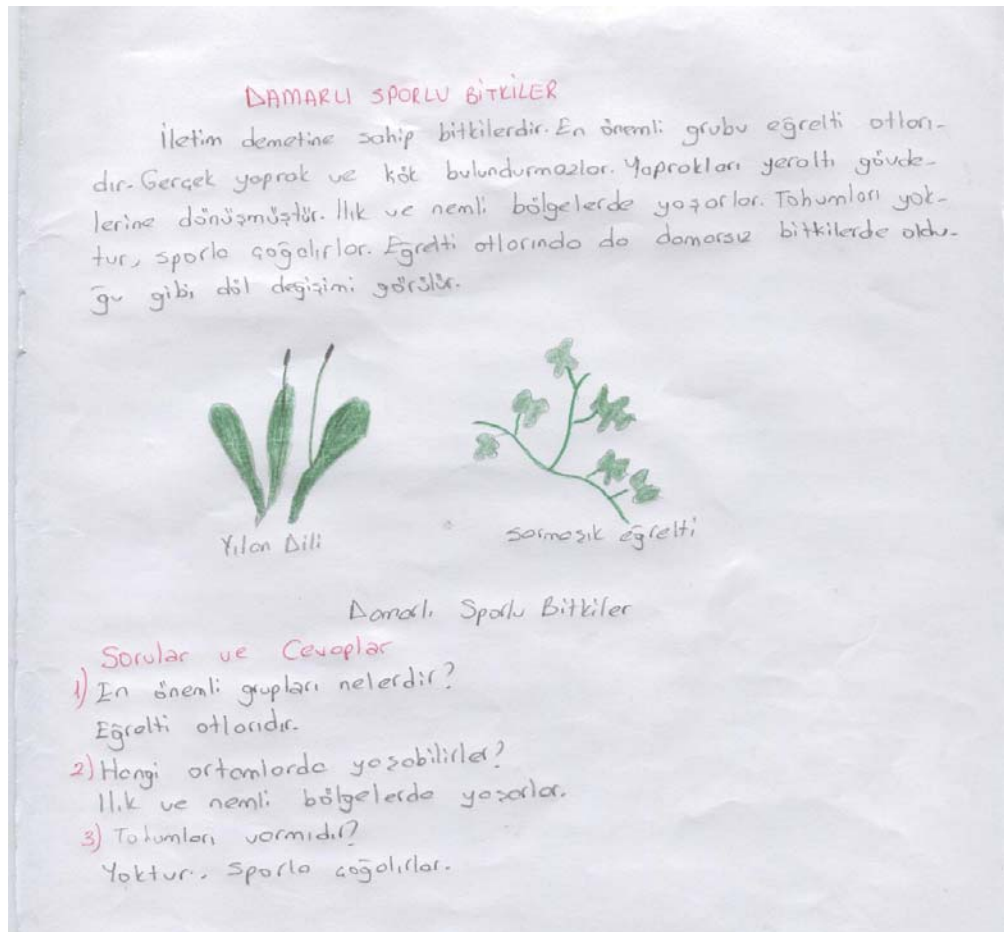 DAMARLI SPORLU BİTKİLER
İletim demetine sahip bitkilerdir. En önemli grubu eğrelti otları-
dır. Gerçek yaprak ve kök bulundurmazlar. Yaprakları yeraltı gövde-
lerine dönüşmüştür. Ilık ve nemli bölgelerde yaşarlar. Tohumları yok-
tur, sporla çoğalırlar. Eğrelti otlarında da damarsız bitkilerde oldu-
ğu gibi döl değişimi görülür.
Yılan Dili
Sarmaşık eğrelti
Damarlı Sporlu Bitkiler
Sorular ve Cevaplar
1) En önemli grupları nelerdir?
Eğrelti otlarıdır.
2) Hangi ortamlarda yaşabilirler?
Ilık ve nemli bölgelerde yaşarlar.
3) Tohumları varmıdır?
Yoktur. Sporla çoğalırlar.